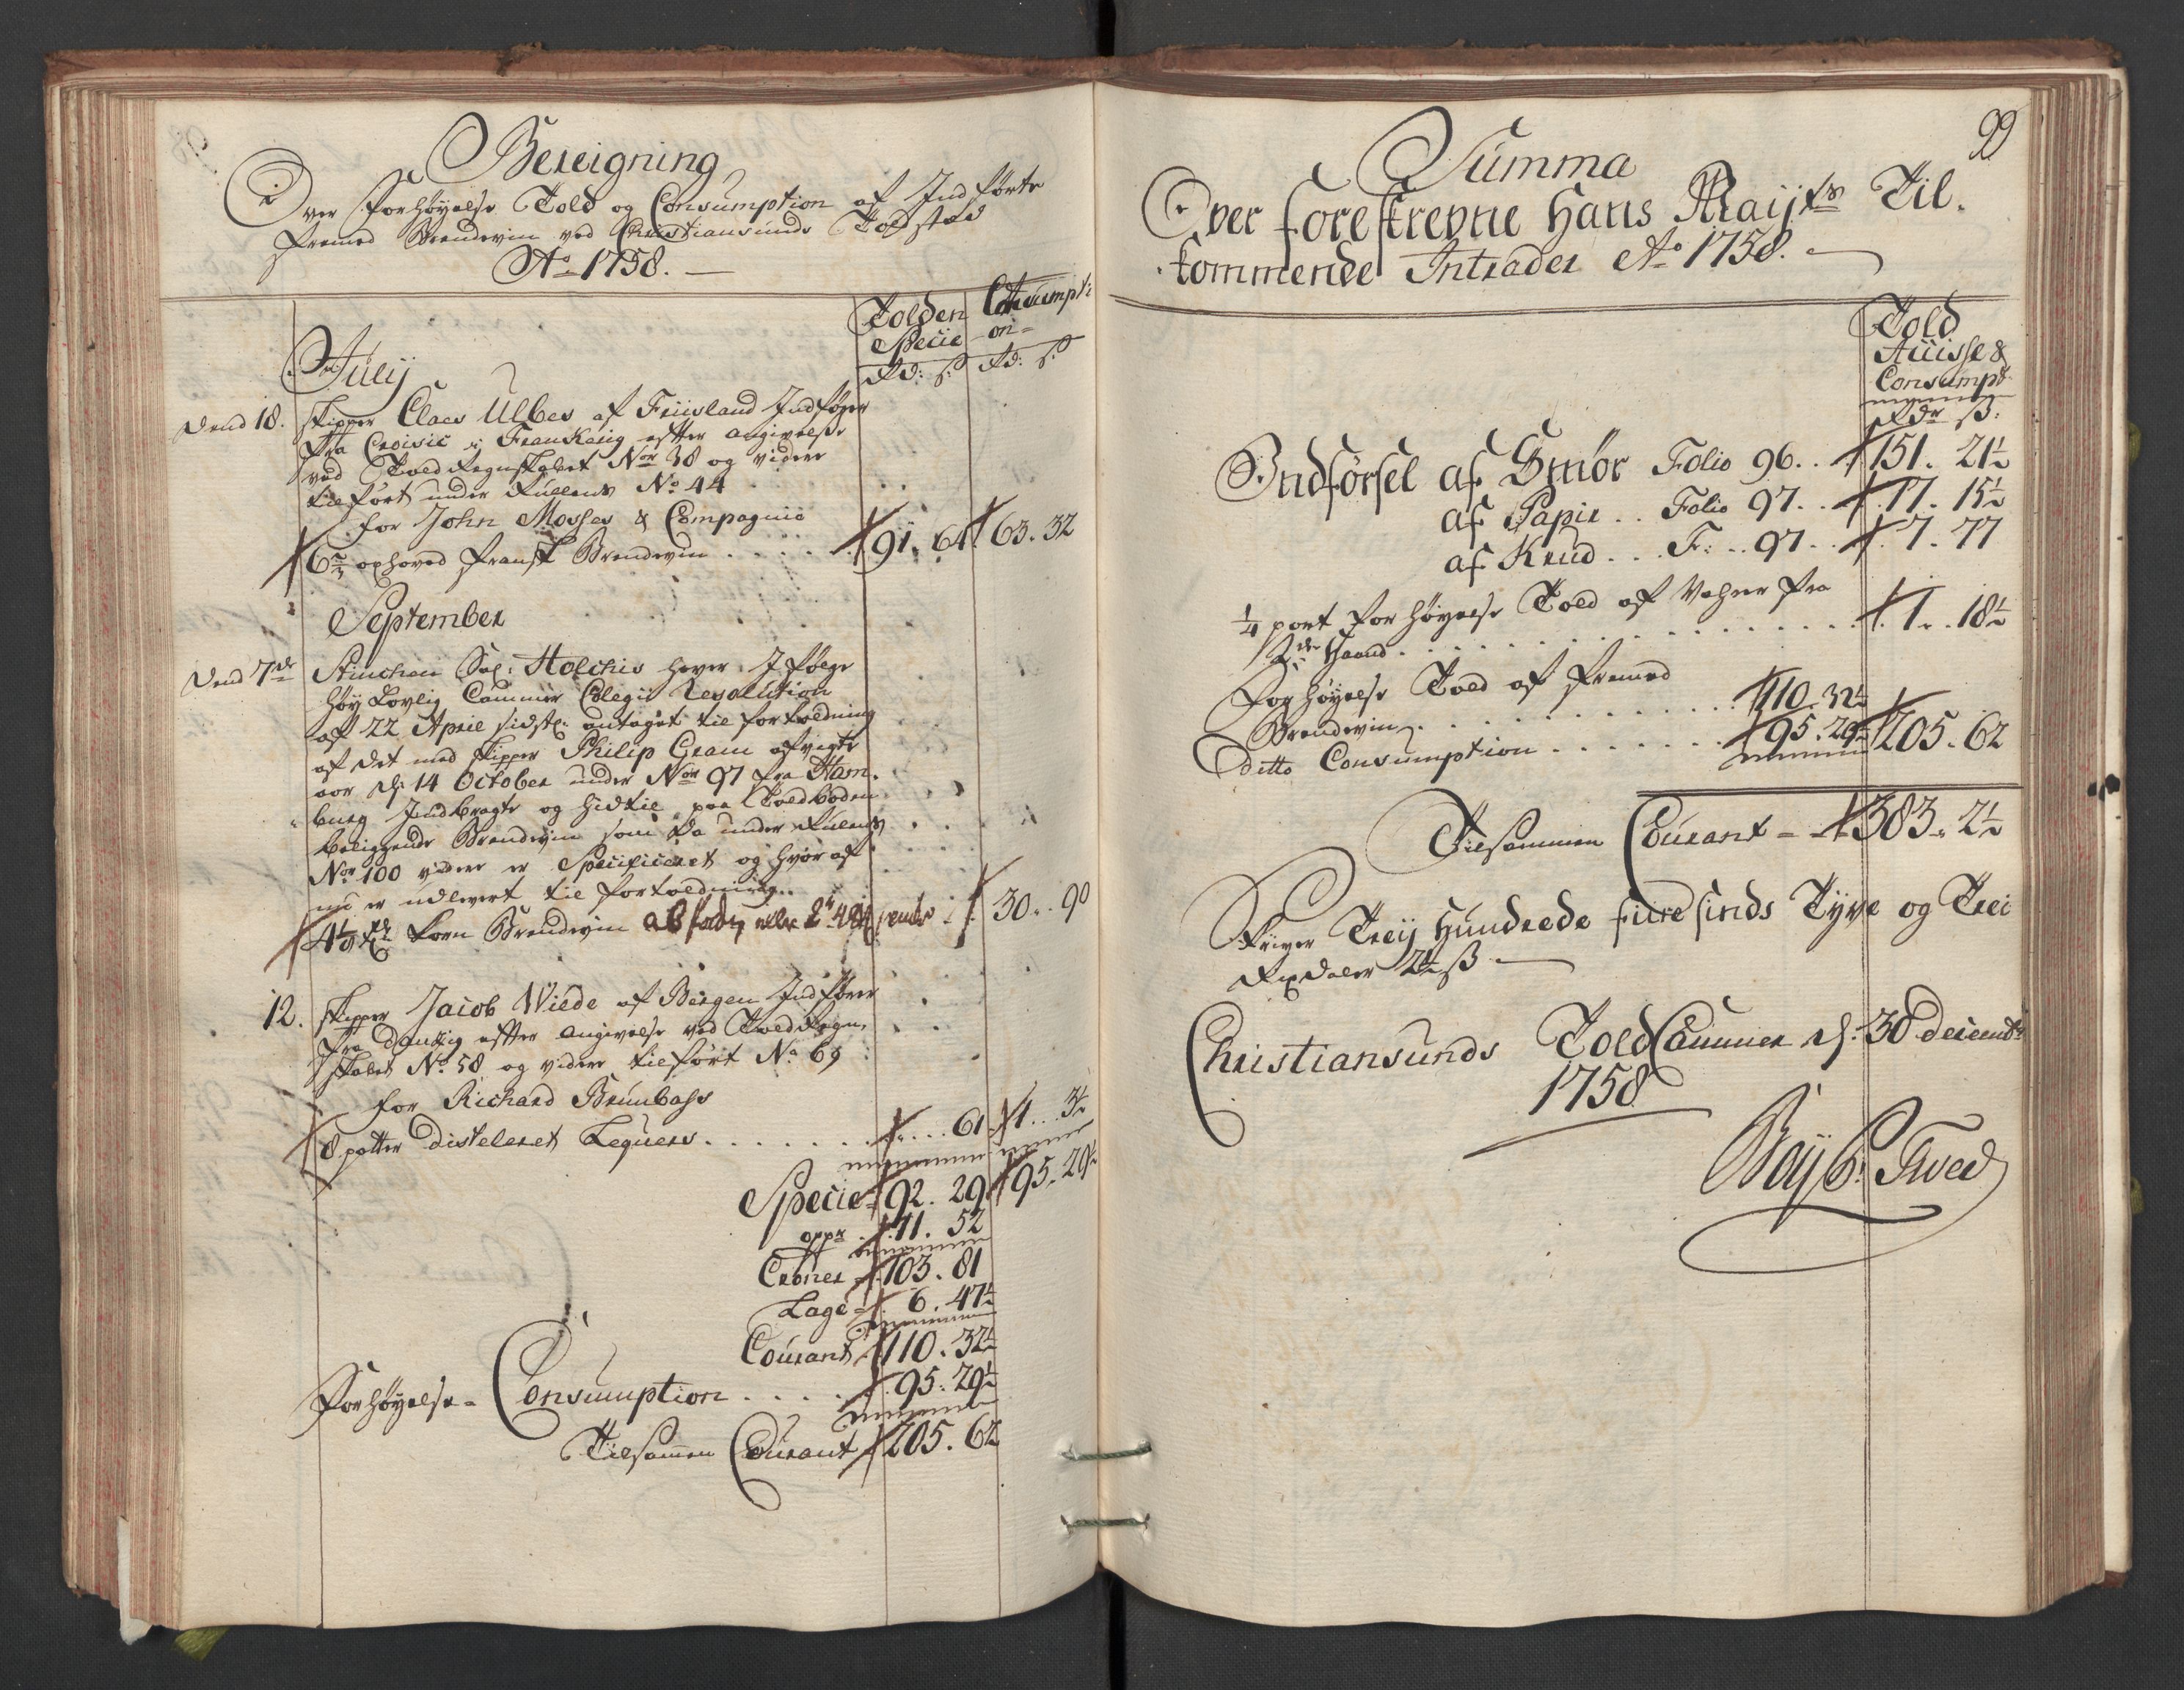 Bereigning
Over Forhøyelse Told og Consumption af Indførte
fremed Brendevin ved Christiansunds Toldsted
Ao 1758.
Tolden Consumpti
Specie on
Rd: s: Rd: s:
Julij
Dend 18. Skipper Claes Ulbes af Friisland Indfører
fra Croisic i Frankerig efter angivelse
ved Told Regnskabet Nor 38 og videre
tilført under Rullens No 44
for John Mosses & Compagnie
6 2/3 oxhoved fransk Brendevin . . . . 91. 64 63. 32
September
Dend 7de Stinchen Sal: Holchis haver Ifølge
høy Lovlig Cammer Collegii Resolution
af 22 April sidstl: antaget til fortoldning
af det med Skipper Philip Gram afvigte
aar d: 14 October under Nor 97 fra Ham-
burg Indbragte og hidtil paa Toldboden
beliggende Brendevin som da under Rullens
Nor 100 videre er Specificeret og hvor af
nu er udlevert til fortoldning
4 1/8 Korn Brendevin 30. 90
12. Skipper Jacob Wiede af Bergen Indfører
fra Dantzig efter angivelse ved Told Regn-
skabet No 58 og videre tilført No 69
for Richard Brumbass
8 potter disteleret Lequers . . . . . . . 61 1. 3½
Specie 92. 29 95. 29½
opp 11. 52
Croner 103. 81
Lage 6. 47½
Courant 110. 32½
Forhøyelse Consumption . . . . 95. 29½
Tilsammen Courant 205. 62
99
Summa
Over foreskrevne Hans Maijts Til-
kommende Intrader Ao 1758.
Told
Accisse &
Consumpt
Rdr ß:
Indførsel af Smør Folio 96. . 151. 21½
af Papir . . Folio 97. . 17. 15½
af Krud . . . F: . . 97 . . 7. 77
¼ part forhøyelse Told af Vahrer fra
2den Haand . . . . . . . . . . 1. 18½
Forhøyelse Told af fremed
Brendevin . . . . . . . . . 110. 32½
ditto Consumption . . . . . . 95. 29½ 205. 62
Tilsammen Courant 383. 2½
Skriver Treij Hundrede fiire sinds Tyve og Trei
Rixdaler 2½ ß
Christiansunds Told Cammer d: 30 decembr
1758
Boij P: Tved